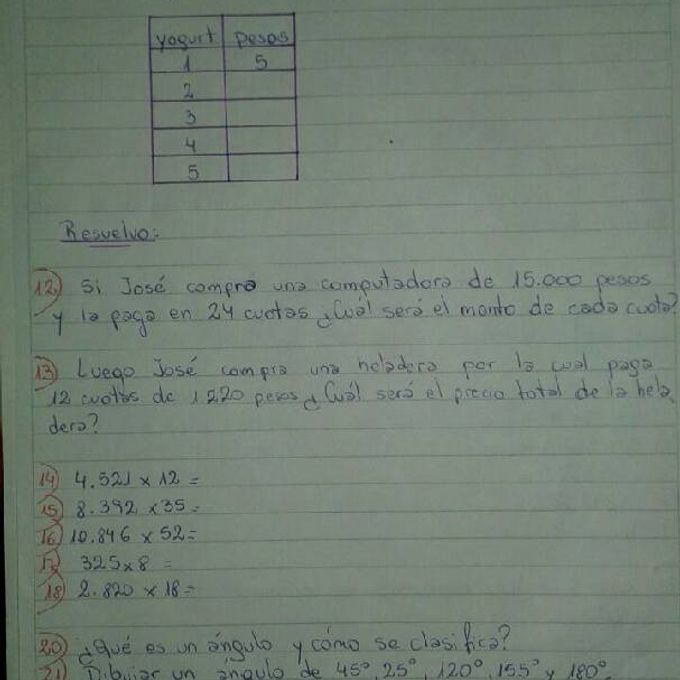 yogurt pesos
1 5
2
3
4
5
Resuelvo:
12) Si José compró una computadora de 15.000 pesos
y la paga en 24 cuotas ¿Cuál será el monto de cada cuota?
13) Luego José compra una heladera por la cual paga
12 cuotas de 1220 pesos ¿Cuál será el precio total de la hela
dera?
14) 4.521 x 12 =
15) 8.392 x 35 =
16) 10.846 x 52 =
17) 325 x 8 =
18) 2.820 x 18 =
20) ¿Qué es un ángulo y cómo se clasifica?
21) Dibujar un ángulo de 45°, 25°, 120°, 155° y 180°.